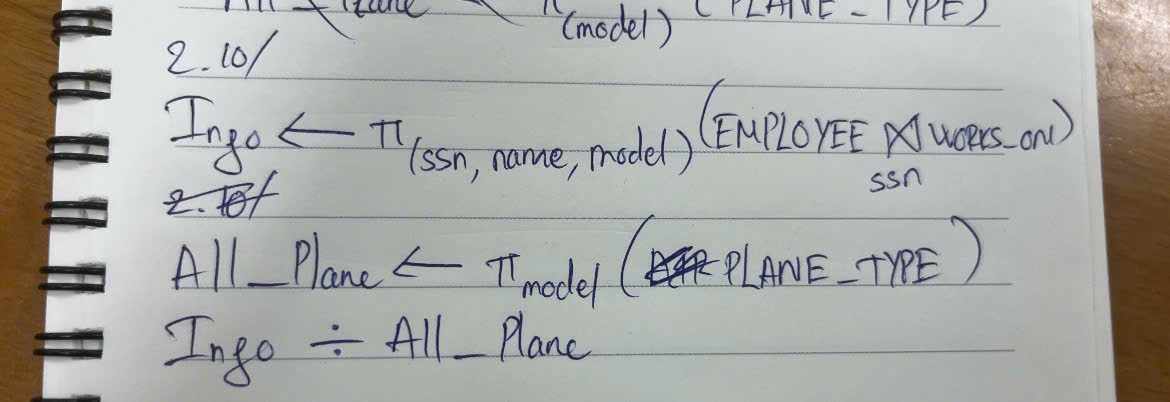 All_Plane π(model) (PLANE_TYPE)
2.10/
Info ← π(ssn, name, model) (EMPLOYEE ⋈ WORKS_ON)
ssn
2.10/
All_Plane ← π model (PLANE_TYPE)
Info ÷ All_Plane